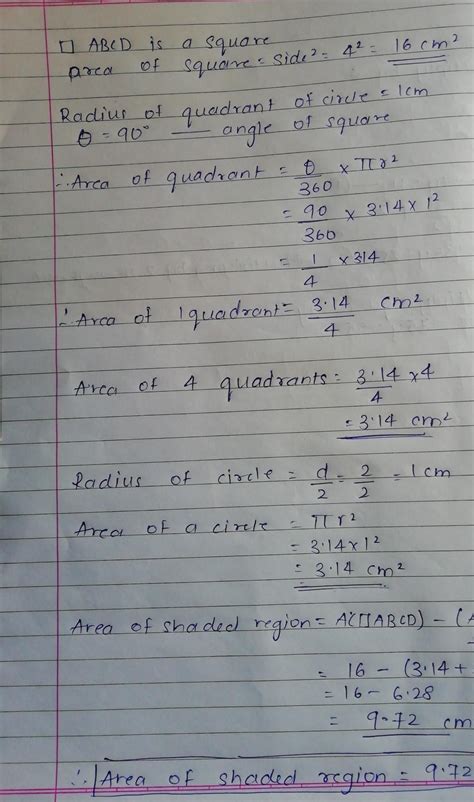 □ ABCD is a square
area of square = side² = 4² = 16 cm²
Radius of quadrant of circle = 1cm
θ = 90° — angle of square
∴ Area of quadrant = θ/360 × πr²
= 90/360 × 3.14 × 1²
= 1/4 × 314
∴ Area of 1 quadrant = 3.14/4 cm²
Area of 4 quadrants = 3.14/4 × 4
= 3.14 cm²
Radius of circle = d/2 = 2/2 = 1 cm
Area of a circle = πr²
= 3.14×1²
= 3.14 cm²
Area of shaded region = A(□ABCD) − (A
= 16 − (3.14 +
= 16 − 6.28
= 9.72 cm
∴ Area of shaded region = 9.72